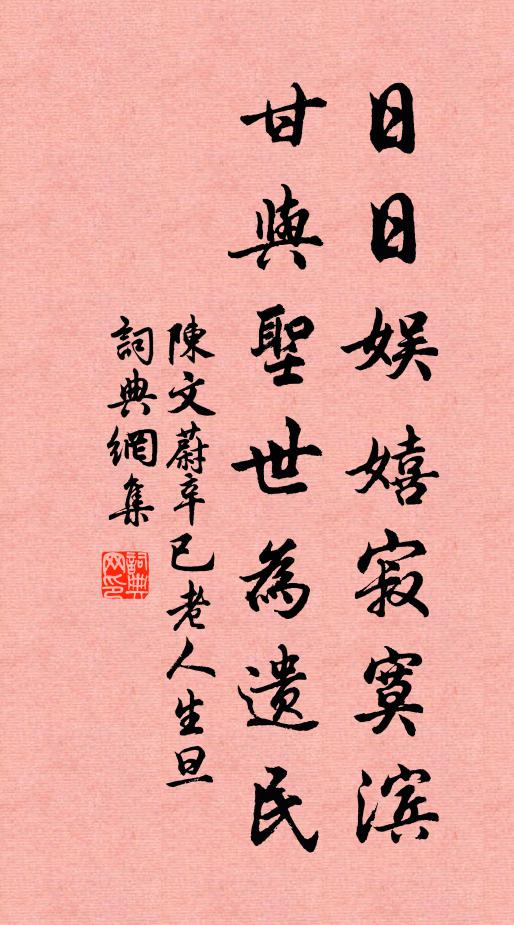 日日娯嬉寂寞滨
甘與聖世為遺民
陳文蔚辛巳老人生旦
詞典網集
詞典网印